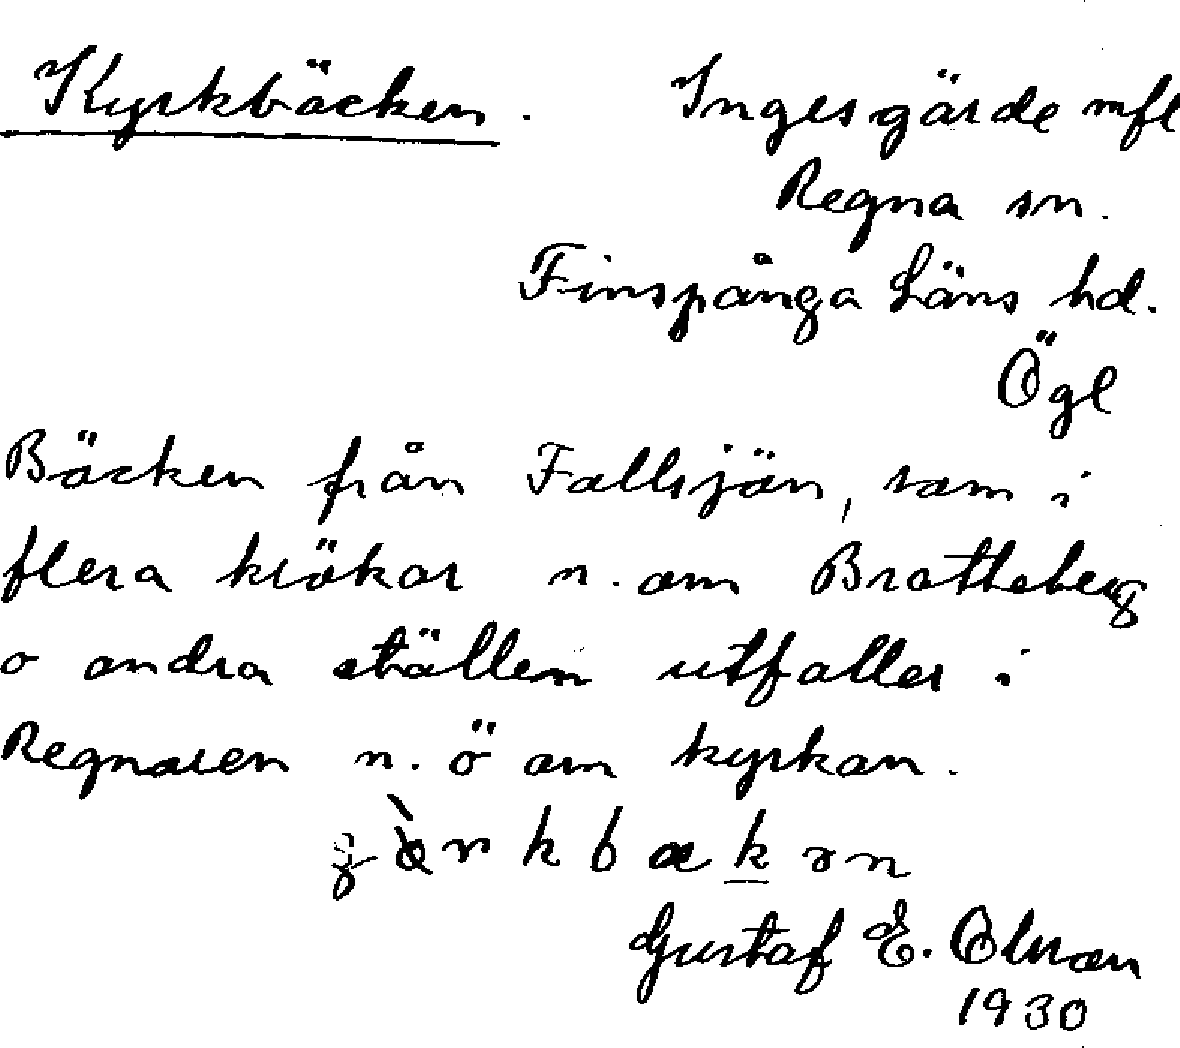 Kyrkbäcken. Ingesgärde mfl
Regna sn.
Finspånga Läns hd.
Ögl
Bäcken från Fallsjön, som i
flera krökar n. om Bratteberg
o andra ställen utfaller i
Regnaren n. ö om kyrkan.
Gustaf E. Olson
1930